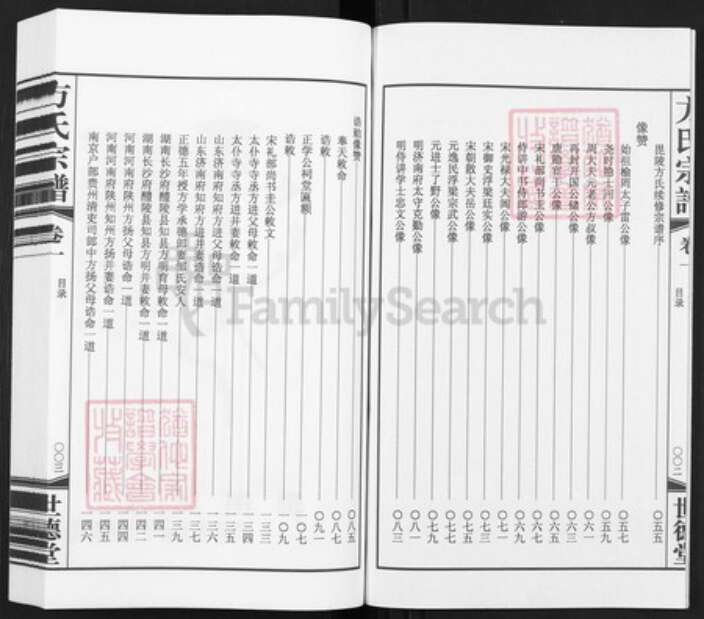 方氏宗谱 卷一 目录 〇〇二 世德堂
毘陵方氏续修宗谱序 〇五五
像赞
始祖榆罔太子雷公像 〇五七
尧时隐士回公像 〇五九
周大夫元老公方叔像 〇六一
再封开国公储公像 〇六三
宋礼部尚书圭公像 〇六七
侍讲中书侍郎游公像
宋光禄大夫闻公像 〇七一
宋御史浮梁廷实公像
宋朝散大夫岳公像
元逸民浮梁宗武公像
元进士了野公像 〇七九
明济南府太守克勤公像
明侍讲学士忠文公像 〇八三
诰勅像赞 〇八五
奉天敕命 〇八七
诰敕 〇九一
正学公祠堂匾额 一〇七
诰敕 一〇九
宋礼部尚书圭公敕文 一三三
太仆寺寺丞方进父母敕命一道 一三四
太仆寺寺丞方进并妻敕命一道 一三五
山东济南府知府方进父母诰命一道 一三六
山东济南府知府方进并妻诰命一道 一三七
正德五年授方学承德郎妻邹氏安人 一三九
湖南长沙府醴陵县知县方明育母敕命一道 一四一
湖南长沙府醴陵县知县方明并妻敕命一道 一四二
河南河南府陕州知州方扬父母诰命一道 一四四
河南河南府陕州知州方扬并妻诰命一道 一四五
南京户部贵州清吏司郎中方扬父母诰命一道 一四六
方氏宗谱 卷一 目录 〇〇三 世德堂
FamilySearch